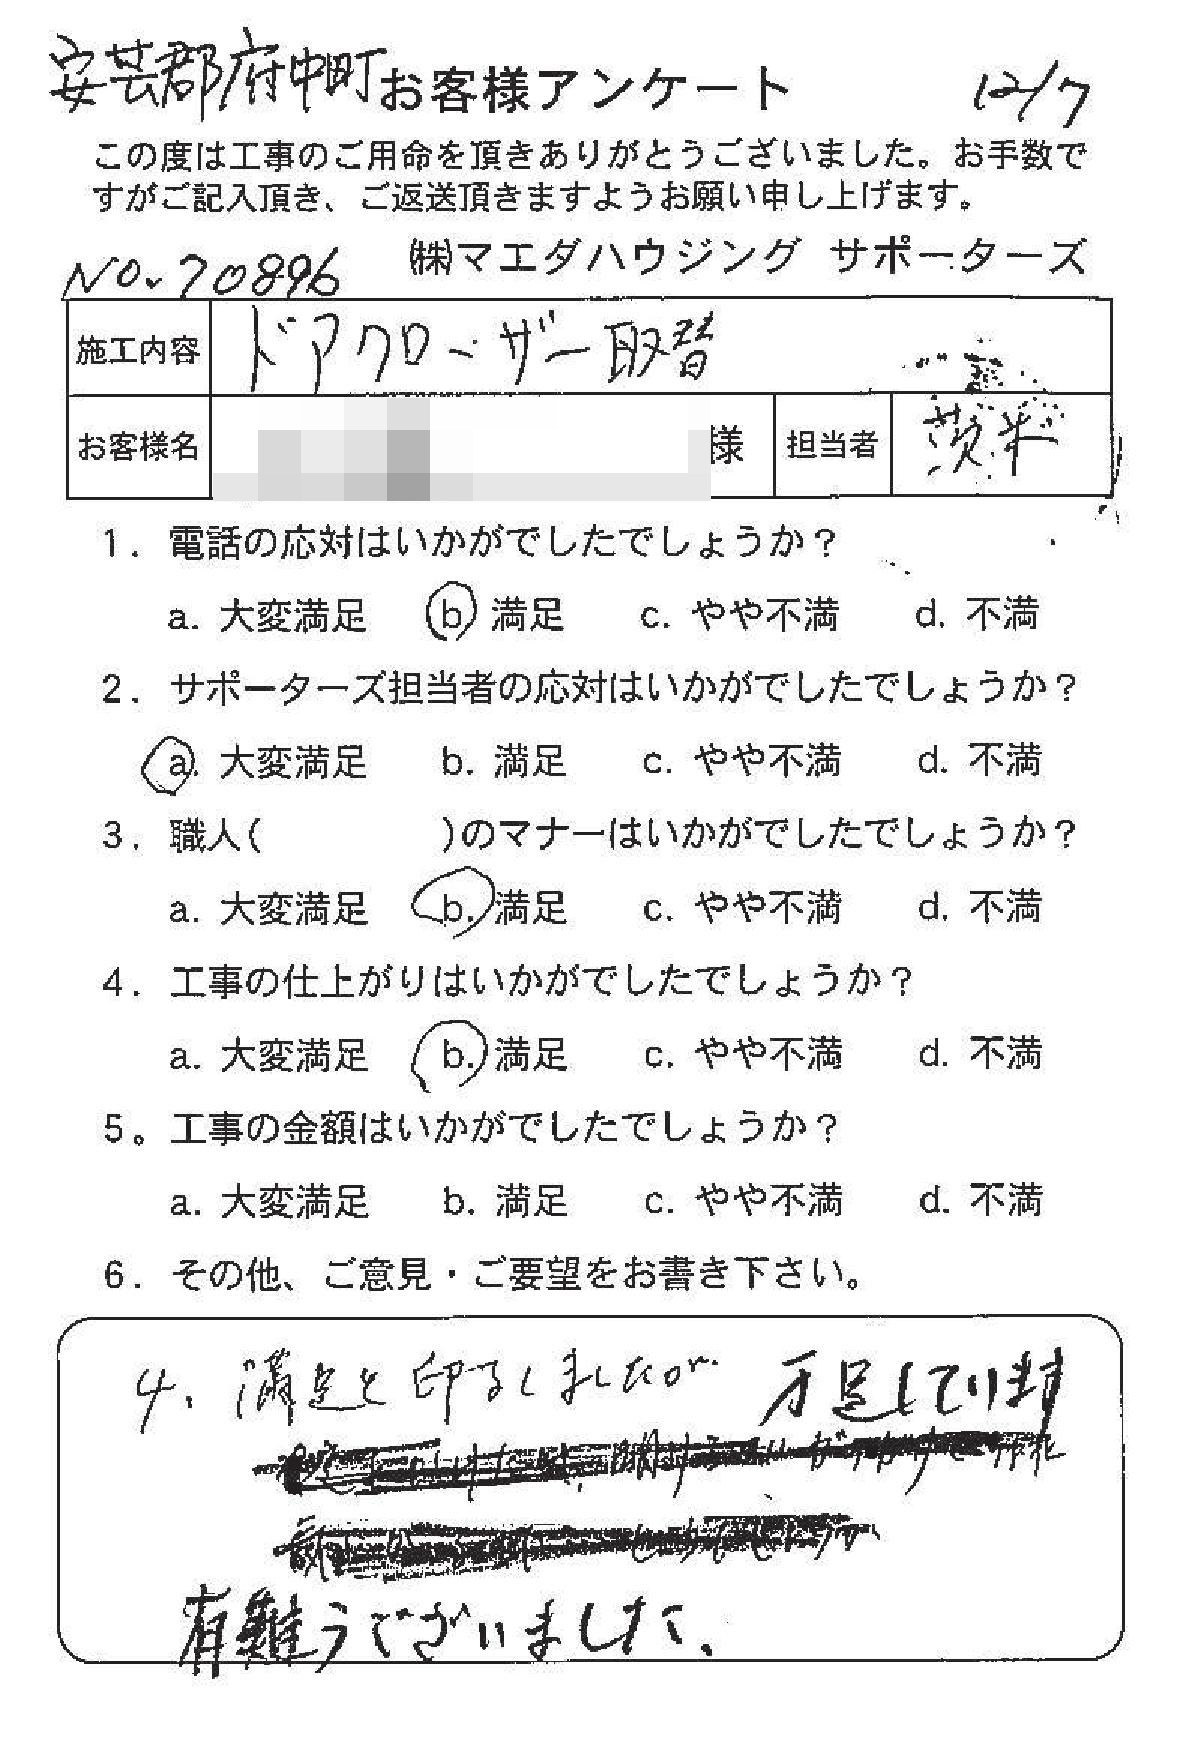 安芸郡府中町 お客様アンケート 12/7
この度は工事のご用命を頂きありがとうございました。お手数で
すがご記入頂き、ご返送頂きますようお願い申し上げます。
No.70896 ㈱マエダハウジング サポーターズ
施工内容 ドアクローザー取替
お客様名 様 担当者 茨木
1. 電話の応対はいかがでしたでしょうか？
a. 大変満足 b 満足 c. やや不満 d. 不満
2. サポーターズ担当者の応対はいかがでしたでしょうか？
a. 大変満足 b. 満足 c. やや不満 d. 不満
3. 職人( )のマナーはいかがでしたでしょうか？
a. 大変満足 b. 満足 c. やや不満 d. 不満
4. 工事の仕上がりはいかがでしたでしょうか？
a. 大変満足 b. 満足 c. やや不満 d. 不満
5。工事の金額はいかがでしたでしょうか？
a. 大変満足 b. 満足 c. やや不満 d. 不満
6. その他、ご意見・ご要望をお書き下さい。
4、満足と印るしましたが 足しています
有難うございました、